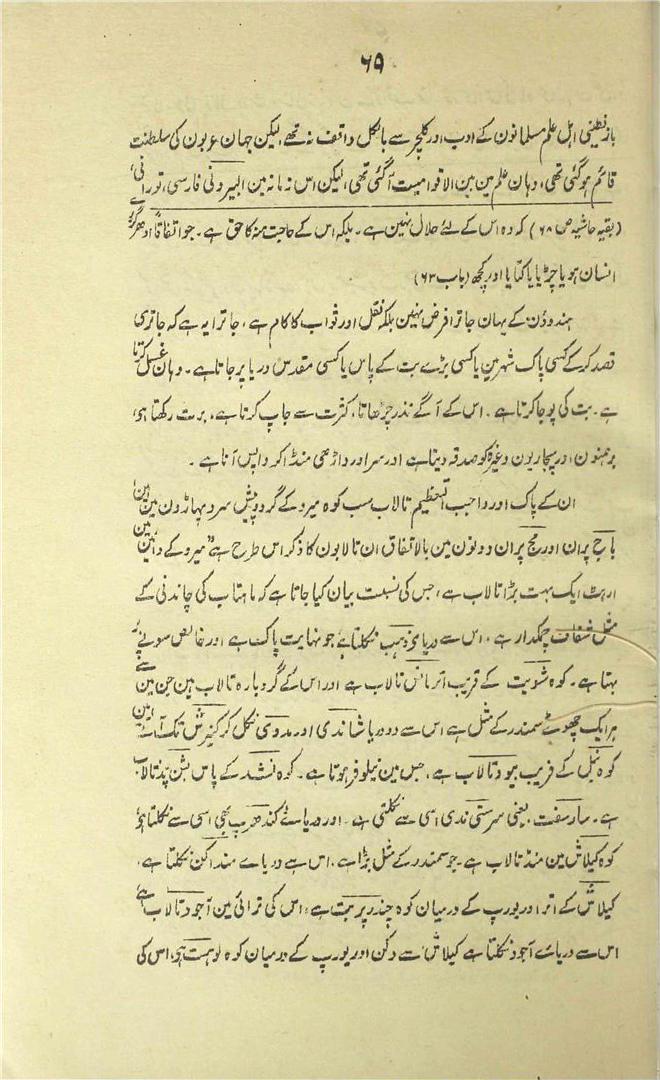 ۶۹
بازنطینی اہل علم مسلمانون کے ادب اور کلچر سے بالکل واقف نہ تھے، لیکن جہان عربون کی سلطنت
قائم ہوگئی تھی، وہان علم مین بین الاقوامیت آگئی تھی، لیکن اس زمانہ مین البیرونی فارسی، تورانی،
(بقیہ حاشیہ ص ۶۸) کہ وہ اس کے لئے حلال نہین ہے۔ بلکہ اس کے حاجت مند کا حق ہے۔ جو اتفاقاً ادھر گزرے
انسان ہو یا چڑیا یا کتا یا اور کچھ (باب ۶۳)
ہندوؤن کے یہان جاترا فرض نہین بلکہ نفل اور ثواب کا کام ہے، جاترا یہ ہے کہ جاتری
قصد کرکے کسی پاک شہر مین یا کسی بڑے بت کے پاس یا کسی مقدس دریا پر جاتا ہے۔ وہان غسل کرتا
ہے۔ بت کی پوجا کرتا ہے۔ اس کے آگے نذر چڑھاتا، کثرت سے جاپ کرتا ہے، برت رکھتا ہی،
برہمنون، اور پجاریون وغیرہ کو صدقہ دیتا ہے اور سر اور داڑھی منڈا کر واپس آتا ہے۔
ان کے پاک اور واجب التعظیم تالاب سب کوہ میرو کے گرد و پیش سرد پہاڑون مین ہین،
باج پران اور مچ پران دونون مین بالاتفاق ان تالابون کا ذکر اس طرح ہے "میرو کے دامن مین
ارہت ایک بہت بڑا تالاب ہے، جس کی نسبت بیان کیا جاتا ہے کہ ماہتاب کی چاندنی کے
مثل شفاف چمکدار ہے، اس سے دریاے ذہب نکلتا ہے جو نہایت پاک ہے اور خالص سونے پر
بہتا ہے۔ کوہ شویت کے قریب اتر مانس تالاب ہے اور اس کے گرد بارہ تالاب ہین جن مین سے
ہر ایک چھوٹے سمندر کے مثل ہے اس سے دو دریا شاندی اور مدوی نکل کر کنپرش تک آتے ہین
کوہ نیل کے قریب بیود تالاب ہے، جس مین نیلوفر ہوتا ہے۔ کوہ نشد کے پاس بشن پد تالاب
ہے۔ سارسفت، یعنی سرستی ندی اسی سے نکلتی ہے۔ اور دریاے گندھرب بھی اسی سے نکلتا ہی
کوہ کیلاش مین مند تالاب ہے۔ جو سمندر کے مثل بڑا ہے، اس سے دریاے منداکن نکلتا ہے،
کیلاش کے اتر اور پورب کے درمیان کوہ چندر پربت ہے، اس کی ترائی مین آجود تالاب ہے
اس سے دریاے آجود نکلتا ہے کیلاش سے دکن اور پورب کے درمیان کوہ لوہت ہی، اس کی